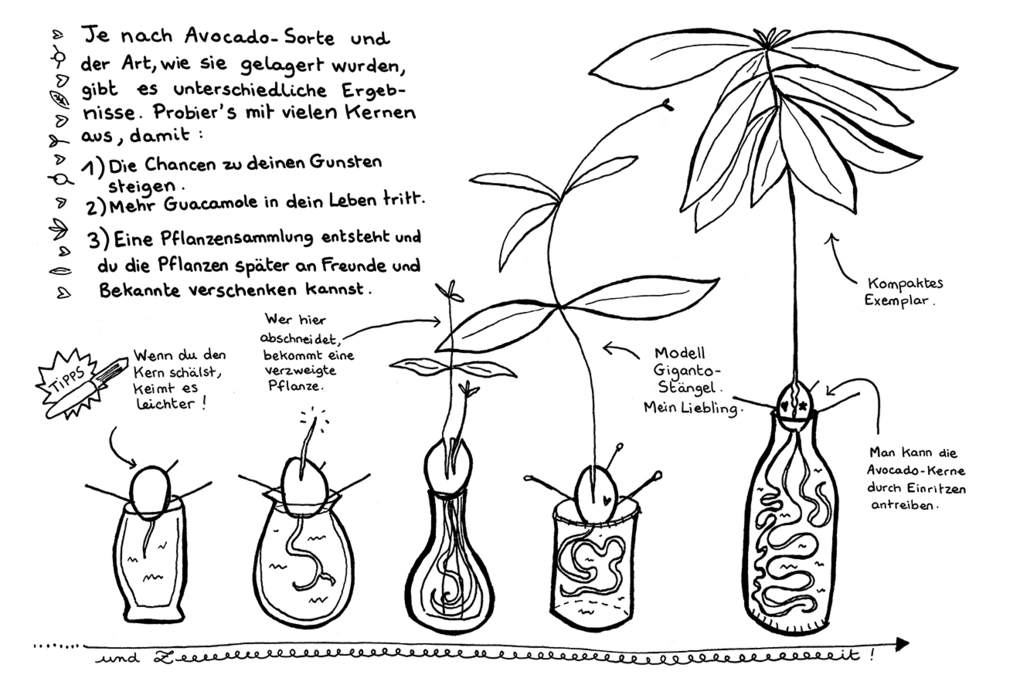 Je nach Avocado-Sorte und
der Art, wie sie gelagert wurden,
gibt es unterschiedliche Ergeb-
nisse. Probier's mit vielen Kernen
aus, damit:
1) Die Chancen zu deinen Gunsten
steigen.
2) Mehr Guacamole in dein Leben tritt.
3) Eine Pflanzensammlung entsteht und
du die Pflanzen später an Freunde und
Bekannte verschenken kannst.
TiPPS
Wenn du den
Kern schälst,
keimt es
leichter!
Wer hier
abschneidet,
bekommt eine
verzweigte
Pflanze.
Modell
Giganto-
Stängel.
Mein Liebling.
Kompaktes
Exemplar.
Man kann die
Avocado-Kerne
durch Einritzen
antreiben.
und Zeeeeeeeeeeeeeeeeeeeeeeeeeeeeeeeeeeeeeeeeeeit!